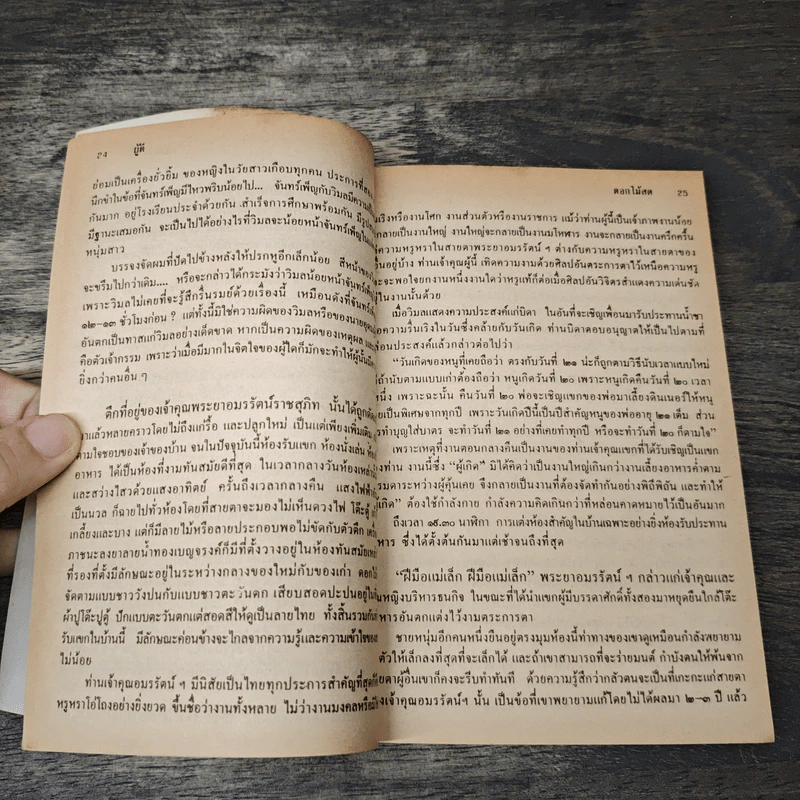 24 ผู้ดี
ย่อมเป็นเครื่องยั่วยิ้ม ของหญิงในวัยสาวเกือบทุกคน ประการที่
นึกขำในข้อที่จันทร์เพ็ญมีไหวพริบน้อยไป... จันทร์เพ็ญกับวิมลมีความ
กันมาก อยู่โรงเรียนประจำด้วยกัน สำเร็จการศึกษาพร้อมกัน มี
มีฐานะเสมอกัน จะเป็นไปได้อย่างไรที่วิมลจะน้อยหน้าจันทร์เพ็ญ
หนุ่มสาว
บรรจงจัดผมที่ปัดไปข้างหลังให้ปรกหูอีกเล็กน้อย สีหน้าของ
จะขรึมไปกว่าเดิม.... หรือจะกล่าวได้กระมังว่าวิมลน้อยหน้าจันทร์เพ็ญ
เพราะวิมลไม่เคยที่จะรู้สึกรื่นรมย์ด้วยเรื่องนี้ เหมือนดังที่จันทร์
๑๒-๑๓ ชั่วโมงก่อน ? แต่ทั้งนี้มิใช่ความผิดของวิมลหรือของนาย
อันตกเป็นทาสแก่วิมลอย่างเด็ดขาด หากเป็นความผิดของเหตุผล
คือตัวเจ้ากรรม เพราะว่าเมื่อมีมากในจิตใจของผู้ใดก็มักจะทำให้ผู้นั้น
ยิ่งกว่าคนอื่น ๆ
ตึกที่อยู่ของเจ้าคุณพระยาอมรรัตน์ราชสุภิท นั้นได้ถูก
มาแล้วหลายคราวโดยไม่ถึงแก่รื้อ และปลูกใหม่ เป็นแต่เพียงเพิ่มเติม
ตามใจชอบของเจ้าของบ้าน จนในปัจจุบันนี้ห้องรับแขก ห้องนั่งเล่น
อาหาร ได้เป็นห้องที่งามทันสมัยดีที่สุด ในเวลากลางวันห้อง
และสว่างไสวด้วยแสงอาทิตย์ ครั้นถึงเวลากลางคืน แสงไฟฟ้า
เป็นนวล ก็ฉายไปทั่วห้องโดยที่สายตาจะมองไม่เห็นดวงไฟ โต๊ะตู้
เกลี้ยงและบาง แต่ก็มีลายไม้หรือลายประกอบพอไม่ขัดกับตัวตึก
ภาชนะลงยาลายน้ำทองเบญจรงค์ก็มีที่ตั้งวางอยู่ในห้องทันสมัย
ที่รองที่ตั้งมีลักษณะอยู่ในระหว่างกลางของใหม่กับของเก่า ดอกไม้
จัดตามแบบชาววังปนกับแบบชาวตะวันตก เสียบสอดปะปนอยู่ใน
ผ้าปูโต๊ะปูตู้ ปักแบบตะวันตกแต่สอดสีให้ดูเป็นลายไทย ทั้งสิ้นรวมกัน
รับแขกในบ้านนี้ มีลักษณะค่อนข้างจะไกลจากความรู้และความเข้าใจของ
ไม่น้อย
ท่านเจ้าคุณอมรรัตน์ ฯ มีนิสัยเป็นไทยทุกประการสำคัญที่สุด
หรูหราโอ่โถงอย่างยิ่งยวด ขึ้นชื่อว่างานทั้งหลาย ไม่ว่างานมงคลหรือ
ดอกไม้สด 25
เริงหรืองานโศก งานส่วนตัวหรืองานราชการ แม้ว่าท่านผู้นี้เป็นเจ้าภาพงานน้อย
กลายเป็นงานใหญ่ งานใหญ่จะกลายเป็นงานมโหฬาร งานจะกลายเป็นงานครึกครื้น
ความหรูหราในสายตาพระยาอมรรัตน์ ฯ ต่างกับความหรูหราในสายตาของ
อยู่บ้าง ท่านเจ้าคุณผู้นี้ เทิดความงามด้วยศิลปอันตระการตาไว้เหนือความหรู
จะพอใจยกงานหนึ่งงานใดว่าหรูแท้ก็ต่อเมื่อศิลปอันวิจิตรสำแดงความเด่นชัด
ในงานนั้นด้วย
เมื่อวิมลแสดงความประสงค์แก่บิดา ในอันที่จะเชิญเพื่อนมารับประทานน้ำชา
ความรื่นเริงในวันซึ่งคล้ายกับวันเกิด ท่านบิดาตอบอนุญาตให้เป็นไปตามที่
ประสงค์แล้วกล่าวต่อไปว่า
“วันเกิดของหนูที่เคยถือว่า ตรงกับวันที่ ๒๑ น่ะก็ถูกตามวิธีนับเวลาแบบใหม่
ถ้านับตามแบบเก่าต้องถือว่า หนูเกิดวันที่ ๒๐ เพราะหนูเกิดคืนวันที่ ๒๐ เวลา
หนึ่ง เพราะฉะนั้น คืนวันที่ ๒๐ พ่อจะเชิญแขกของพ่อมาเลี้ยงดินเนอร์ให้หนู
เป็นพิเศษจากทุกปี เพราะวันเกิดปีนี้เป็นปีสำคัญหนูของพ่ออายุ ๒๑ เต็ม ส่วน
ทำบุญใส่บาตร จะทำวันที่ ๒๑ อย่างที่เคยทำทุกปี หรือจะทำวันที่ ๒๐ ก็ตามใจ”
เพราะเหตุที่งานตอนกลางคืนเป็นงานของท่านเจ้าคุณแขกที่ได้รับเชิญเป็นแขก
ท่าน งานนี้ซึ่ง “ผู้เกิด” มิได้คิดว่าเป็นงานใหญ่เกินกว่างานเลี้ยงอาหารค่ำตาม
ธรรมดาระหว่างผู้คุ้นเคย จึงกลายเป็นงานที่ต้องจัดทำกันอย่างพิถีพิถัน และทำให้
เกิด” ต้องใช้กำลังกาย กำลังความคิดเกินกว่าที่หล่อนคาดหมายไว้เป็นอันมาก
ถึงเวลา ๑๕.๓๐ นาฬิกา การแต่งห้องสำคัญในบ้านเฉพาะอย่างยิ่งห้องรับประทาน
อาหาร ซึ่งได้ตั้งต้นกันมาแต่เช้าจนถึงที่สุด
“ฝีมือแม่เล็ก ฝีมือแม่เล็ก” พระยาอมรรัตน์ ฯ กล่าวแก่เจ้าคุณและ
คุณหญิงบริหารธนกิจ ในขณะที่ได้นำแขกผู้มีบรรดาศักดิ์ทั้งสองมาหยุดยืนใกล้โต๊ะ
อาหารอันตกแต่งไว้งามตระการตา
ชายหนุ่มอีกคนหนึ่งยืนอยู่ตรงมุมห้องนี้ท่าทางของเขาดูเหมือนกำลังพยายาม
ตัวให้เล็กลงที่สุดที่จะเล็กได้ และถ้าเขาสามารถที่จะร่ายมนต์ กำบังตนให้พ้นจาก
สายตาผู้อื่นเขาก็คงจะรีบทำทันที ด้วยความรู้สึกว่ากลัวตนจะเป็นที่เกะกะแก่สายตา
เจ้าคุณอมรรัตน์ฯ นั้น เป็นข้อที่เขาพยายามแก้โดยไม่ได้ผลมา ๒-๓ ปี แล้ว